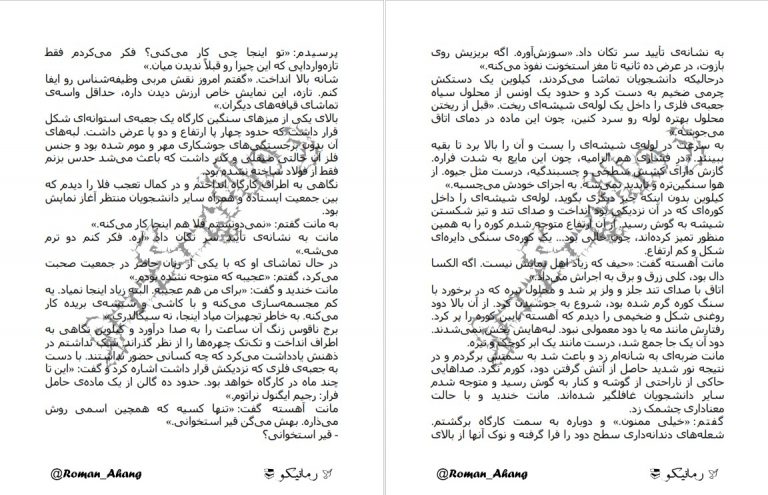 به نشانه‌ی تأیید سر تکان داد. «سوزش‌آوره. اگه بریزیش روی
بازوت، در عرض ده ثانیه تا مغز استخونت نفوذ می‌کنه.»
درحالیکه دانشجویان تماشا می‌کردند، کیلوین یک دستکش
چرمی ضخیم به دست کرد و حدود یک اونس از محلول سیاه
جعبه‌ی فلزی را داخل یک لوله‌ی شیشه‌ای ریخت. «قبل از ریختن
محلول بهتره لوله رو سرد کنین، چون این ماده در دمای اتاق
می‌جوشه.»
به سرعت در لوله‌ی شیشه‌ای را بست و آن را بالا برد تا بقیه
ببینند. «در فشاری هم الزامیه، چون این مایع به شدت فراره.
گازش دارای کشش سطحی و چسبندگیه، درست مثل جیوه. از
هوا سنگین‌تره و ناپدید نمی‌شه. به اجزای خودش می‌چسبه.»
کیلوین بدون اینکه چیز دیگری بگوید، لوله‌ی شیشه‌ای را داخل
کوره‌ای که در آن نزدیکی بود انداخت و صدای تند و تیز شکستن
شیشه به گوش رسید. از آن ارتفاع متوجه شدم کوره را به همین
منظور تمیز کرده‌اند، چون خالی بود... یک کوره‌ی سنگی دایره‌ای
شکل و کم ارتفاع.
مانت آهسته گفت: «حیف که زیاد اهل نمایش نیست. اگه الکسا
دال بود، کلی زرق و برق به اجراش می‌داد.»
اتاق با صدای تند جلز و ولز پر شد و محلول تیره که در برخورد با
سنگ کوره گرم شده بود، شروع به جوشیدن کرد. از آن بالا دود
روغنی شکل و ضخیمی را دیدم که آهسته پایین کوره را پر کرد.
رفتارش مانند مه یا دود معمولی نبود. لبه‌هایش پخش نمی‌شدند.
دود آن یک جا جمع شد، درست مانند یک ابر کوچک و تیره.
مانت ضربه‌ای به شانه‌ام زد و باعث شد به سمتش برگردم و در
نتیجه نور شدید حاصل از آتش گرفتن دود، کورم نکرد. صداهایی
حاکی از ناراحتی از گوشه و کنار به گوش رسید و متوجه شدم
سایر دانشجویان غافلگیر شده‌اند. مانت خندید و با حالت
معناداری چشمک زد.
گفتم: «خیلی ممنون.» و دوباره به سمت کارگاه برگشتم.
شعله‌های دندانه‌داری سطح دود را فرا گرفته و نوک آنها از بالای
رمانیکو
@Roman_Ahang
پرسیدم: «تو اینجا چی کار می‌کنی؟ فکر می‌کردم فقط
تازه‌واردایی که این چیزا رو قبلاً ندیدن میان.»
شانه بالا انداخت. «گفتم امروز نقش مربی وظیفه‌شناس رو ایفا
کنم. تازه، این نمایش خاص ارزش دیدن داره، حداقل واسه‌ی
تماشای قیافه‌های دیگران.»
بالای یکی از میزهای سنگین کارگاه یک جعبه‌ی استوانه‌ای شکل
قرار داشت که حدود چهار پا ارتفاع و دو پا عرض داشت. لبه‌های
آن بدون برجستگی‌های جوشکاری مهر و موم شده بود و جنس
فلز آن حالتی صیقلی و کدر داشت که باعث می‌شد حدس بزنم
فقط از فولاد ساخته نشده بود.
نگاهی به اطراف کارگاه انداختم و در کمال تعجب فلا را دیدم که
بین جمعیت ایستاده و همراه سایر دانشجویان منتظر آغاز نمایش
بود.
به مانت گفتم: «نمی‌دونستم فلا هم اینجا کار می‌کنه.»
مانت به نشانه‌ی تأیید سر تکان داد. «آره. فکر کنم دو ترم
می‌شه.»
در حال تماشای او که با یکی از زنان حاضر در جمعیت صحبت
می‌کرد، گفتم: «عجیبه که متوجه نشده بودم.»
مانت خندید و گفت: «برای من هم عجیبه. البته زیاد اینجا نمیاد. یه
کم مجسمه‌سازی می‌کنه و با کاشی و شیشه‌ی بریده کار
می‌کنه. به خاطر تجهیزات میاد اینجا، نه سیگالدری.»
برج ناقوس زنگ آن ساعت را به صدا درآورد و کیلوین نگاهی به
اطراف انداخت و تک‌تک چهره‌ها را از نظر گذراند. شک نداشتم در
ذهنش یادداشت می‌کرد که چه کسانی حضور نداشتند. با دست
به جعبه‌ی فلزی که نزدیکش قرار داشت اشاره کرد و گفت: «این تا
چند ماه در کارگاه خواهد بود. حدود ده گالن از یک ماده‌ی حامل
فرار: رجیم ایگنول نراتوم.»
مانت آهسته گفت: «تنها کسیه که همچین اسمی روش
می‌ذاره. بهش می‌گن قیر استخوانی.»
- قیر استخوانی؟
رمانیکو
@Roman_Ahang